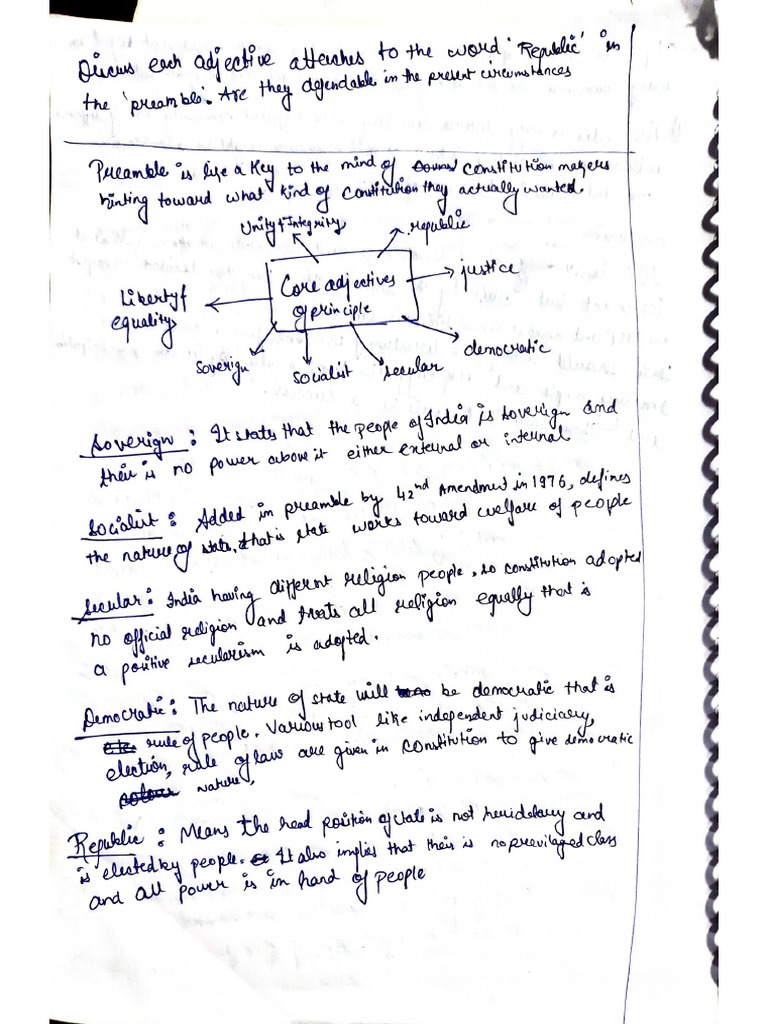 Discuss each adjective attaches to the word 'Republic' in
the 'preamble'. Are they defendable in the present circumstances
Preamble is like a key to the mind of constitution makers
hinting toward what kind of constitution they actually wanted.
Unity & Integrity
republic
Core adjectives
of principle
justice
Liberty &
equality
democratic
soverign
socialist
secular
Soverign : It stats that the people of India is soverign and
their is no power above it either external or internal
Socialist : Added in preamble by 42nd Amendment in 1976, defines
the nature of state, that is state works toward welfare of people
Secular : India having different religion people, so constitution adopted
no official religion and treats all religion equally that is
a positive secularism is adopted.
Democratic : The nature of state will be democratic that is
rule of people. Various tool like independent judiciary,
election, rule of law are given in constitution to give democratic
nature,
Republic : Means the head position of state is not heridetary and
is elected by people. It also implies that their is no previlaged class
and all power is in hand of people